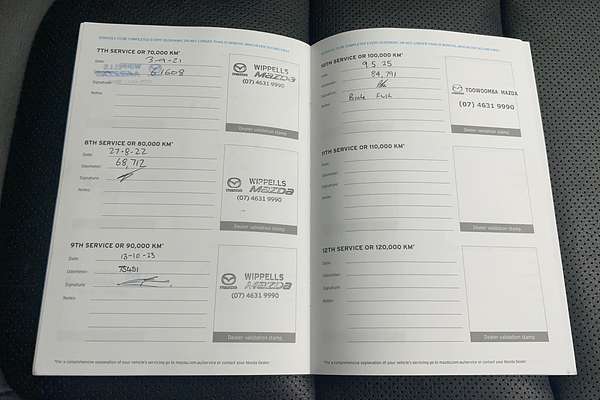 7TH SERVICE OR 70,000 KM*
Date: 3-9-21
61608
Notes:
WIPPELLS
mazda
(07) 4631 9990
Dealer validation stamp
8TH SERVICE OR 80,000 KM*
Date: 27-8-22
Odometer: 68,712
Signature:
Notes:
WIPPELLS
mazda
(07) 4631 9990
Dealer validation stamp
9TH SERVICE OR 90,000 KM*
Date: 13-10-23
Odometer:
Signature:
Notes:
WIPPELLS
mazda
(07) 4631 9990
Dealer validation stamp
*For a comprehensive explanation of your vehicle's servicing go to mazda.com.au/service or contact your Mazda Dealer.
10TH SERVICE OR 100,000 KM*
Date: 9.5.25
Odometer: 84,791
Signature:
Notes: Brake Fluid
TOOWOOMBA MAZDA
(07) 4631 9990
Dealer validation stamp
11TH SERVICE OR 110,000 KM*
Date:
Odometer:
Signature:
Notes:
Dealer validation stamp
12TH SERVICE OR 120,000 KM*
Date:
Odometer:
Signature:
Notes:
Dealer validation stamp
*For a comprehensive explanation of your vehicle's servicing go to mazda.com.au/service or contact your Mazda Dealer.